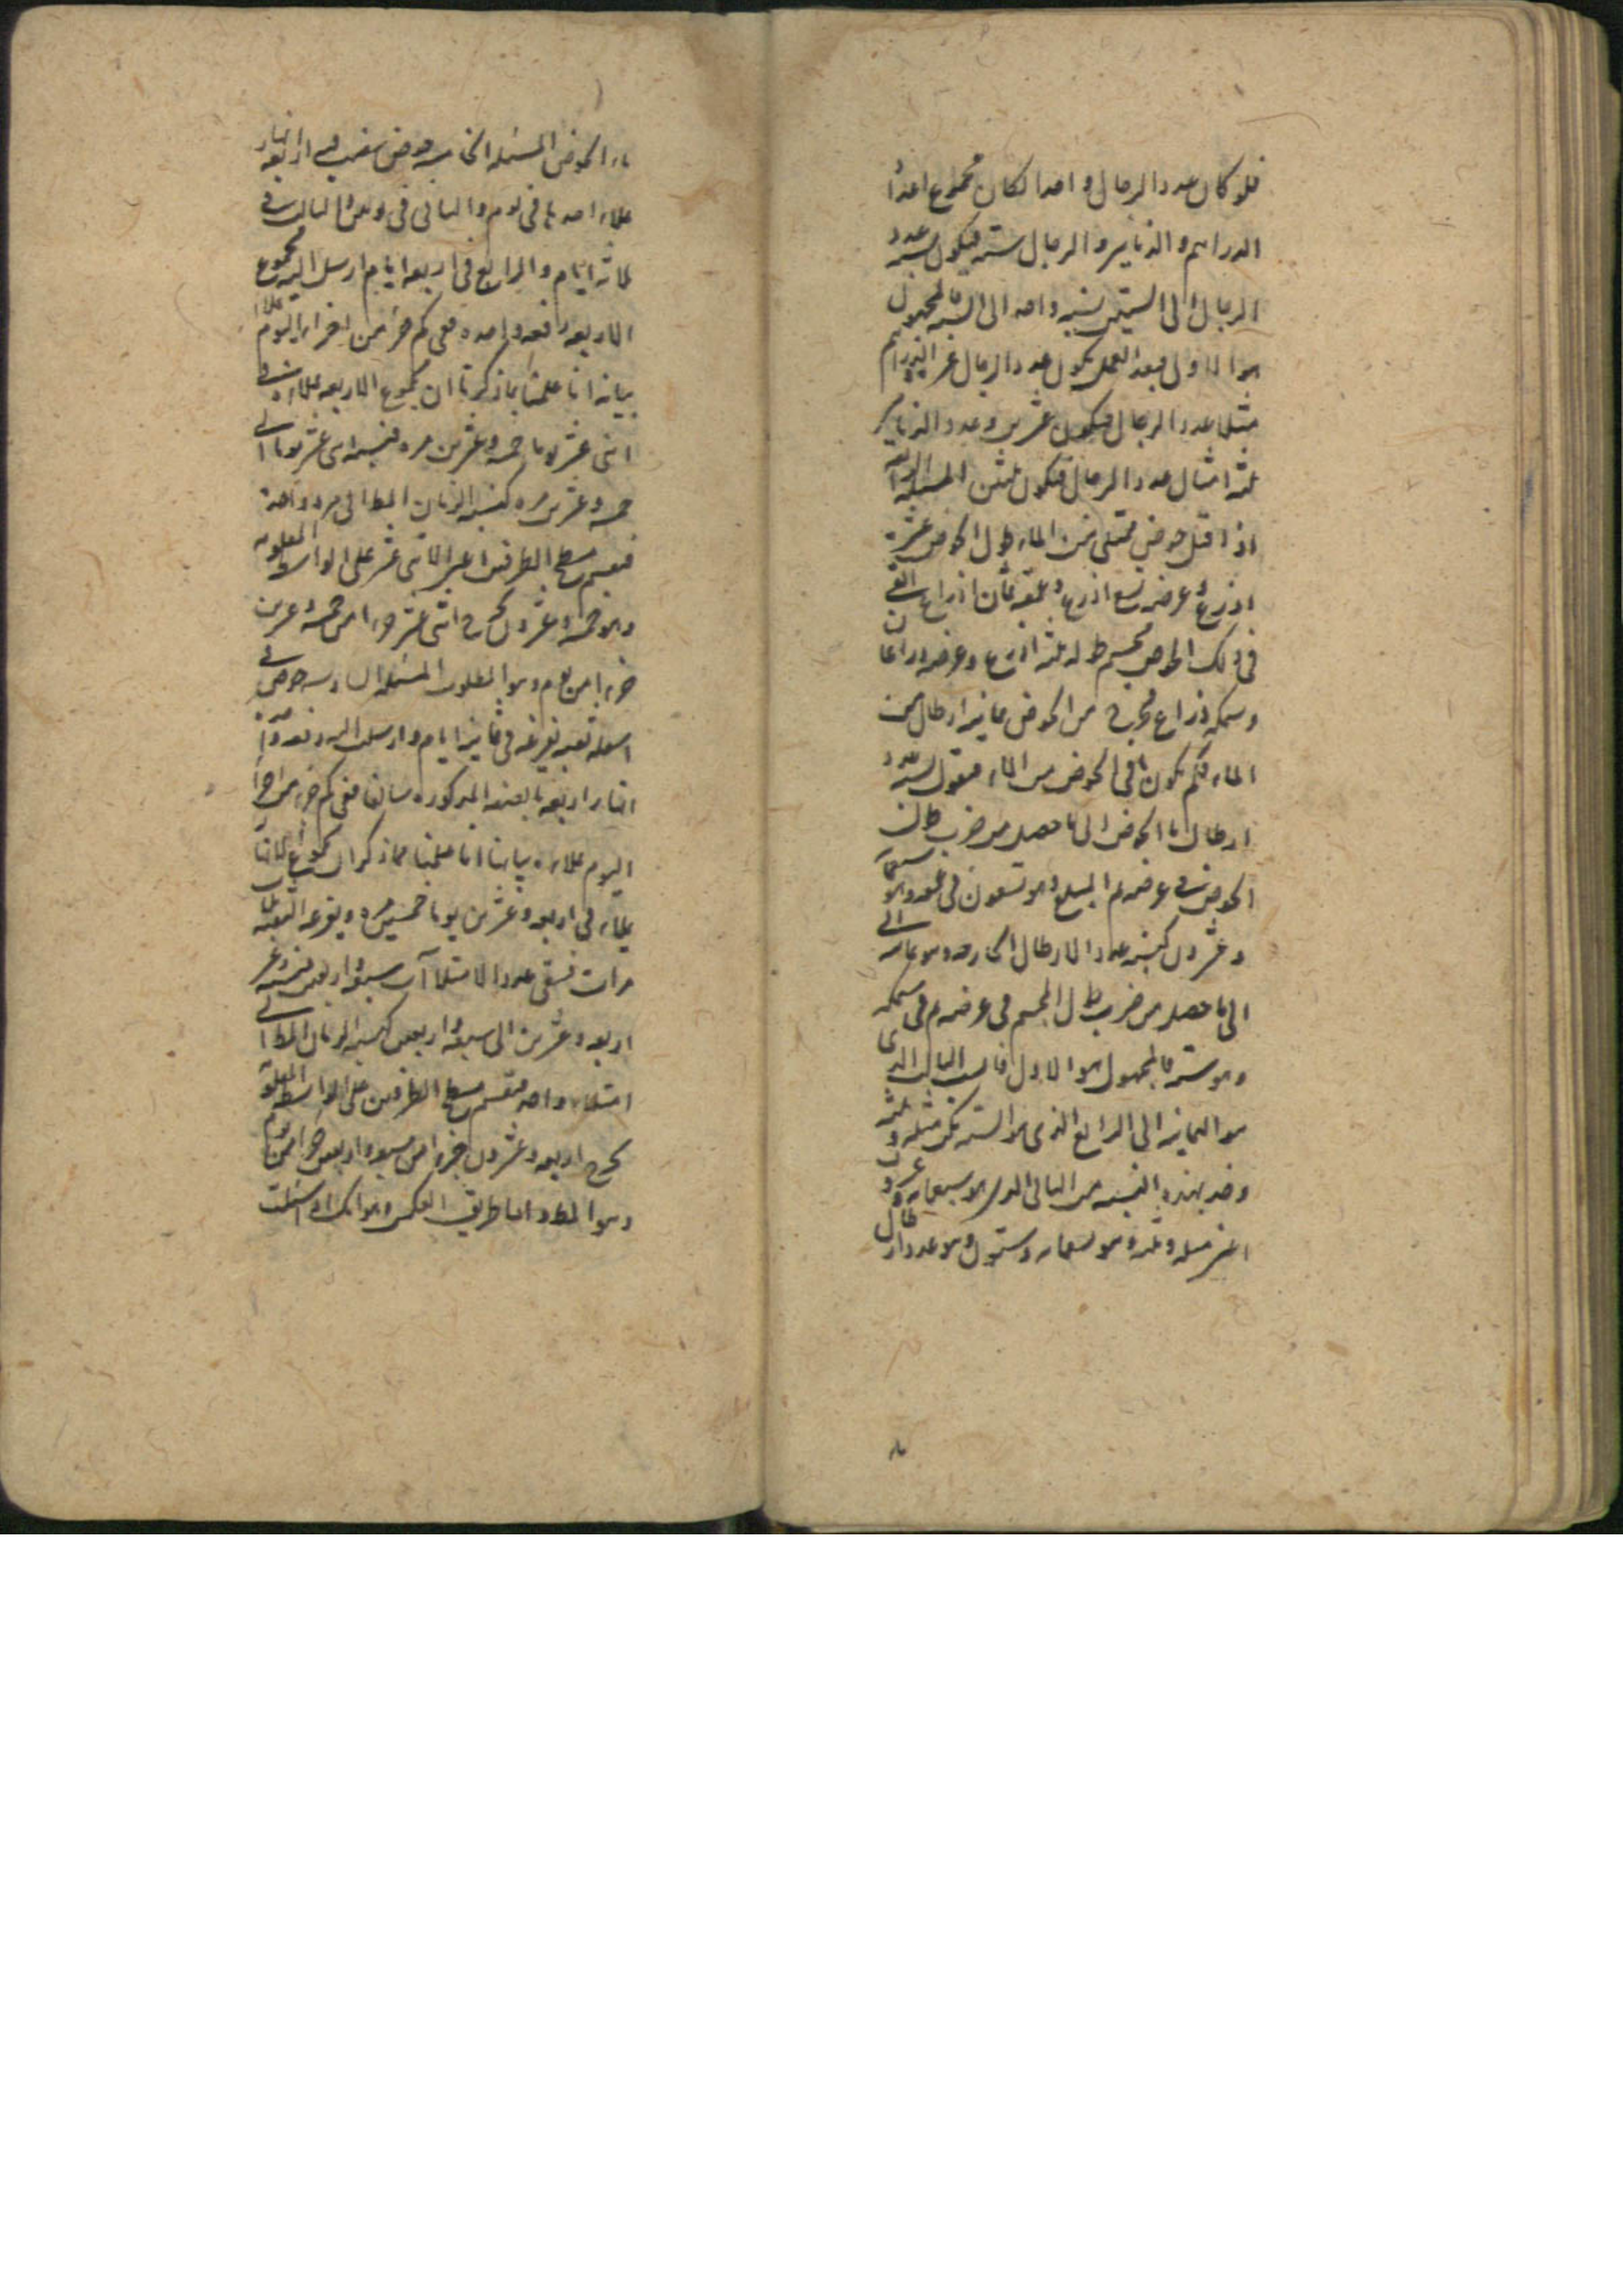 فلو كان عدد الرجال واحدا لكان مجموع اعداد
الدراهم والدنانير والرجال ستة فيكون نسبة عدد
الرجال الى الستين نسبة واحد الى الستة فالمجهول
هو الاول فبعد العمل يكون عدد الرجال عشرا والدراهم
مثلا عدد الرجال فيكون عشرين وعدد الدنانير
ثلثة امثال عدد الرجال فيكون ثلثين المسئلة الرابعة
اذا قيل حوض ممتلى من الماء طول الحوض عشرة
اذرع وعرضه تسع اذرع وعمقه ثمان اذراع القى
فى ذلك الحوض مجسم طوله ثلثة اذرع وعرضه ذراعان
وسمكه ذراع فخرج من الحوض ثمانية ارطال من
الماء فكم يكون ما فى الحوض من الماء فنقول نسبة عدد
ارطال ما الحوض الى ما حصل من ضرب طول
الحوض فى عرضه ثم المبلغ وهو تسعون فى عمقه وهو سبعمائة
وعشرون كنسبة عدد الارطال الخارجة وهو ثمانية الى
الى ما حصل من ضرب طول المجسم فى عرضه ثم فى سمكه
وهو ستة فالمجهول هو الاول فانسب الثالث الذى
هو الثمانية الى الرابع الذى هو الستة يكن مثله وثلثه
وخذ بهذه النسبة من الثانى الذى هو سبعمائة وعشرون
اعنى مثله وثلثه هو تسعمائه وستون وهو عدد ارطال
ما
ماء الحوض المسئلة الخامسة حوض نصب فيه اربعة انهار
يملاء احدها فى يوم والثانى فى يومين والثالث فى
ثلاثة ايام والرابع فى اربعة ايام ارسل اليه مجموع
الاربعة دفعة واحدة ففى كم جزء من اجزاء اليوم يملأ
بيانه انا علمنا بما ذكرنا ان مجموع الاربعة يملاءه فى
اثنى عشر يوما خمسة وعشرين مرة فنسبة اثنى عشر يوما الى
خمسة وعشرين مرة كنسبة الزمان المط الى مرة واحدة
فنقسم مسطح الطرفين اعنى الاثنى عشر على الواسطة المعلومة
وهو خمسة وعشرون يخرج اثنى عشر جزءا من خمسة وعشرين
جزءا من يوم وهو المطلوب المسئلة السادسة حوض فى
اسفله ثقبة تفرغه فى ثمانية ايام وارسلت اليه دفعة واحدة
انهار اربعة بالصفة المذكورة سابقا ففى كم جزء من اجزاء
اليوم يملاءه بيانه انا علمنا مما ذكر ان مجموع الانهار
يملاه فى اربعة وعشرين يوما خمسين مرة ويفرغه الثقبة ثلث
مرات فبقى عدد الامتلاآت سبعة واربعين فنسبة
اربعة وعشرين الى سبعة واربعين كنسبة الزمان المط الى
امتلاء واحد فنقسم مسطح الطرفين على الواسطة المعلومة
يخرج اربعة وعشرون جزءا من سبعة واربعين جزءا من يوم
وهو المط واما طريق العكس وهو انك اذا سئلت